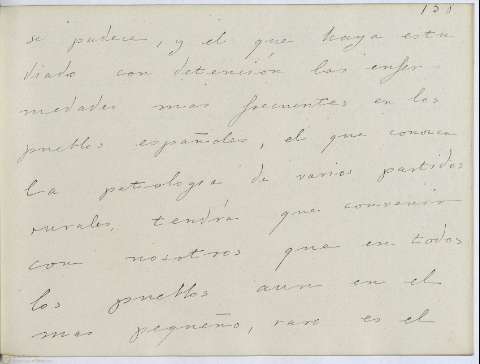 130
se padece, y el que haya estu
diado con detención las enfer
medades mas frecuentes en los
pueblos españoles, el que conozca
la patologia de varios partidos
rurales, tendrá que convenir
con nosotros que en todos
los pueblos aun en el
mas pequeño, raro es el